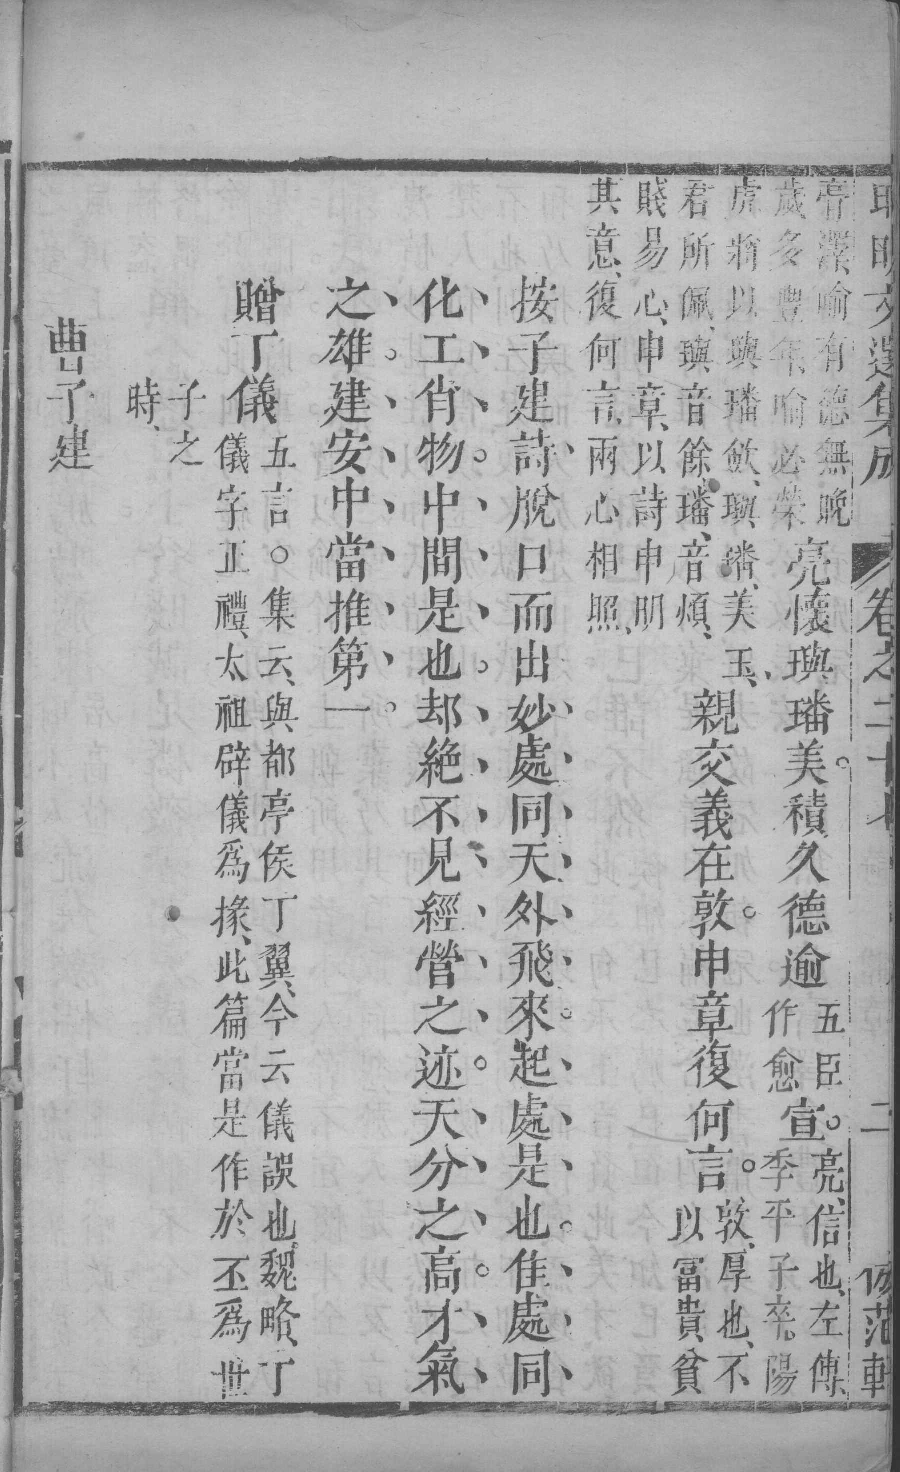 昭明文選集成 卷之二十七 二 倣范軒
膏澤喻有德無晚
歲多豐年喻必榮亮懷璵璠美積久德逾五臣作愈宣亮信也左傳季平子卒陽
虎將以璵璠斂璵璠美玉親交義在敦申章復何言敦厚也不以富貴貧
君所佩璵音餘璠音煩
賤易心申章以詩申明
其意復何言兩心相照
按子建詩脫口而出妙處同天外飛來起處是也佳處同
化工肖物中間是也却絕不見經營之迹天分之高才氣
之雄建安中當推第一
贈丁儀五言○集云與都亭侯丁翼今云儀誤也魏略丁儀字正禮太祖辟儀爲掾此篇當是作於丕爲世
子之時
曹子建